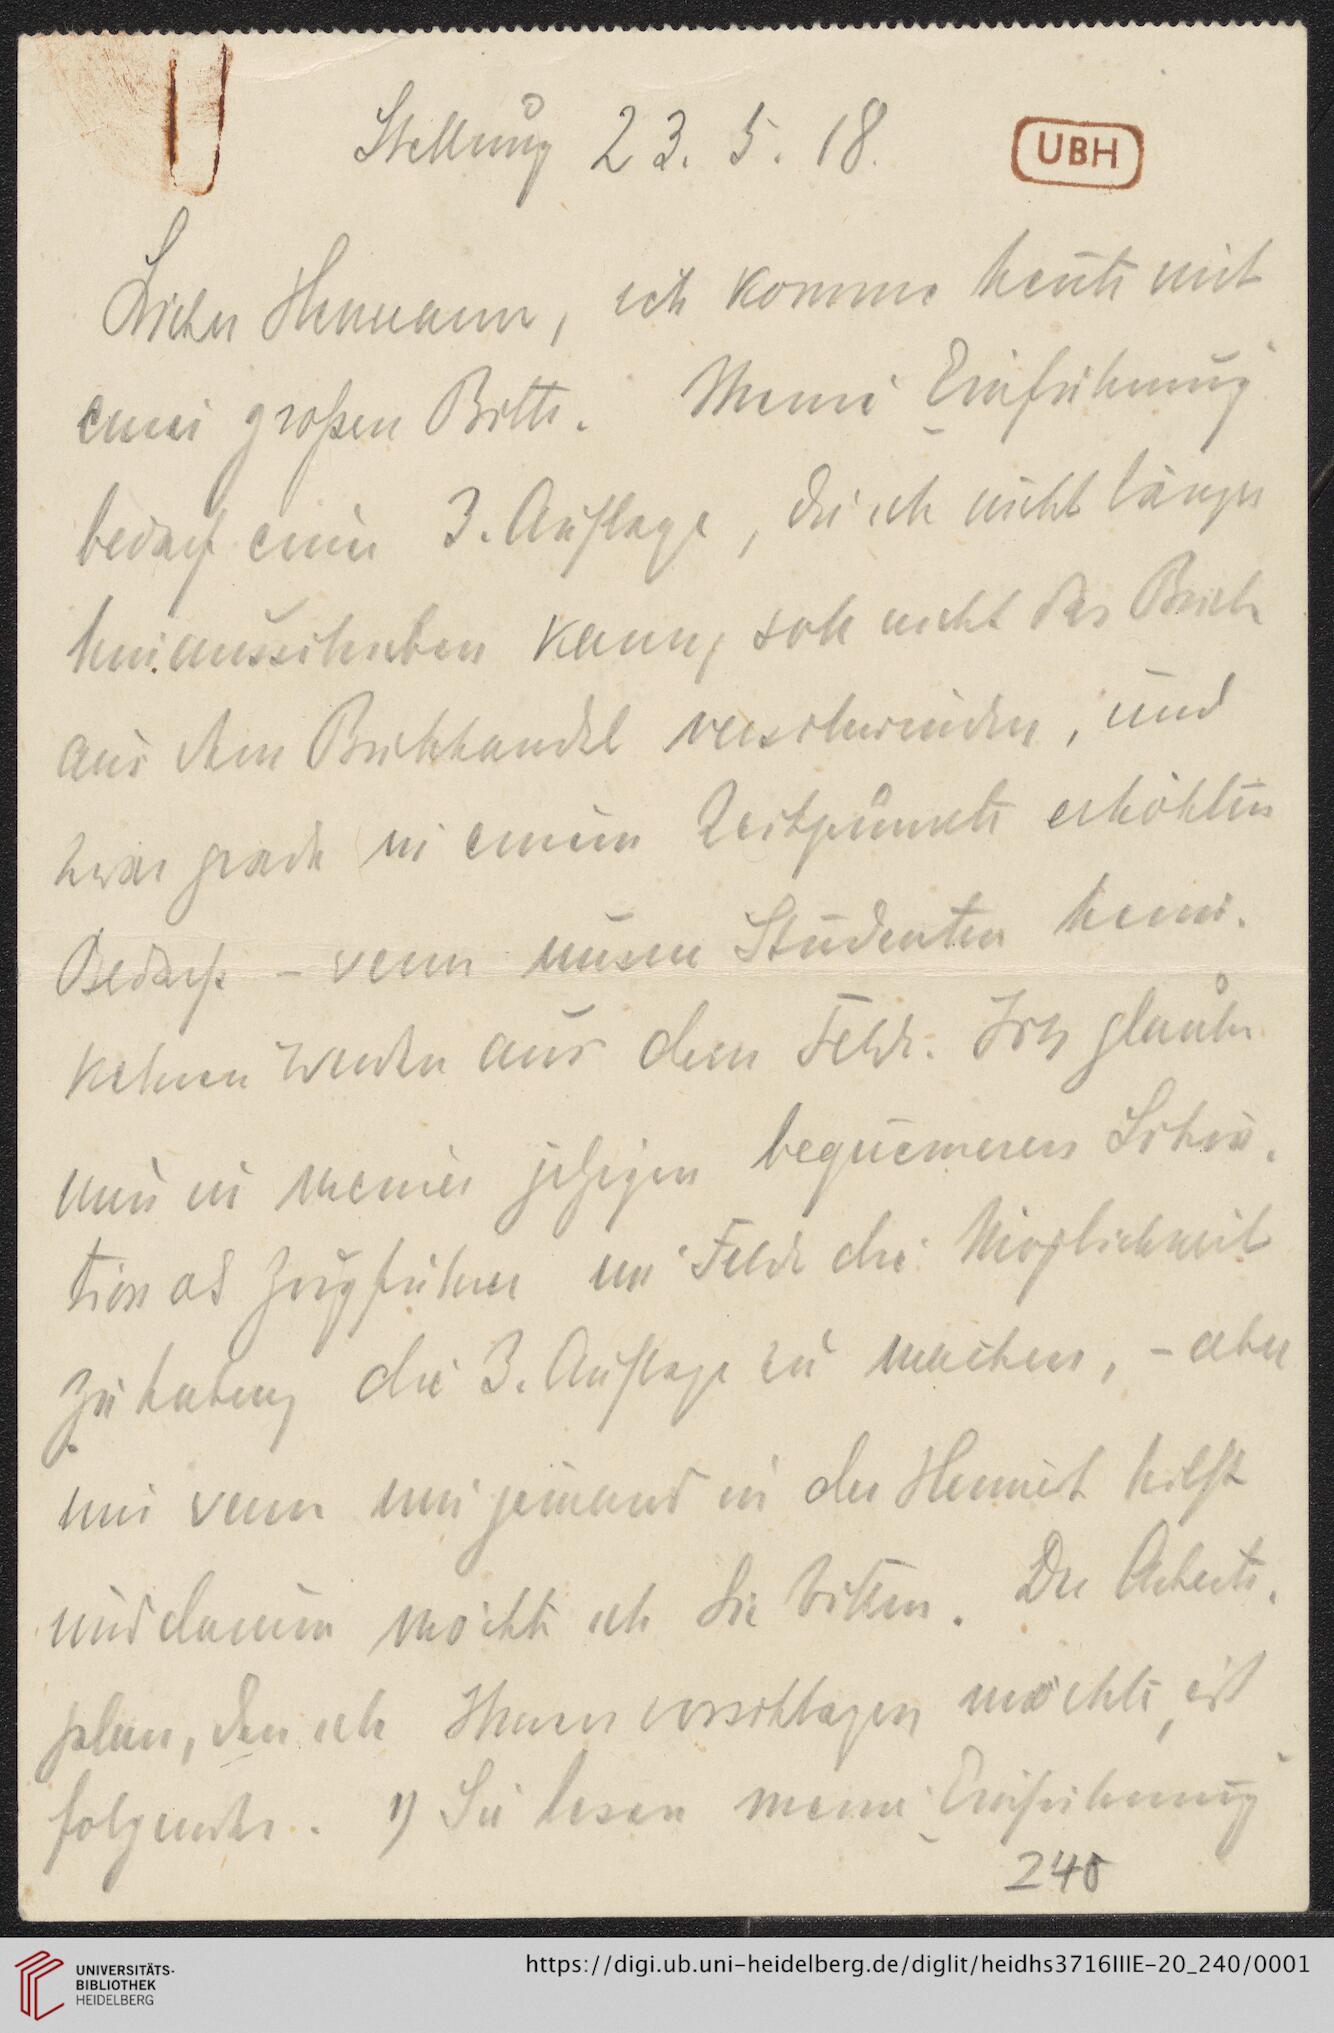 Stellung 23. 5. 18.
UBH
Lieber Hermann, ich komme heute mit
einer großen Bitte. Meine „Einführung“
bedarf einer 3. Auflage, die ich nicht länger
hinausschieben kann, soll nicht das Buch
aus dem Buchhandel verschwinden, und
zwar grade in einem Zeitpunkte erhöhten
Bedarfs – wenn unsere Studenten heim-
kehren werden aus dem Felde. Ich glaube
nun in meiner jetzigen bequemeren Situa-
tion als Zugführer im Felde die Möglichkeit
zu haben, die 3. Auflage zu machen, – aber
nur wenn mir jemand in der Heimat hilft
und darum möchte ich Sie bitten. Der Arbeits-
plan, den ich Ihnen vorschlagen möchte, ist
folgender. 1) Sie lesen meine „Einführung“
240
UNIVERSITÄTS-
BIBLIOTHEK
HEIDELBERG
https://digi.ub.uni-heidelberg.de/diglit/heidhs3716IIIE-20_240/0001